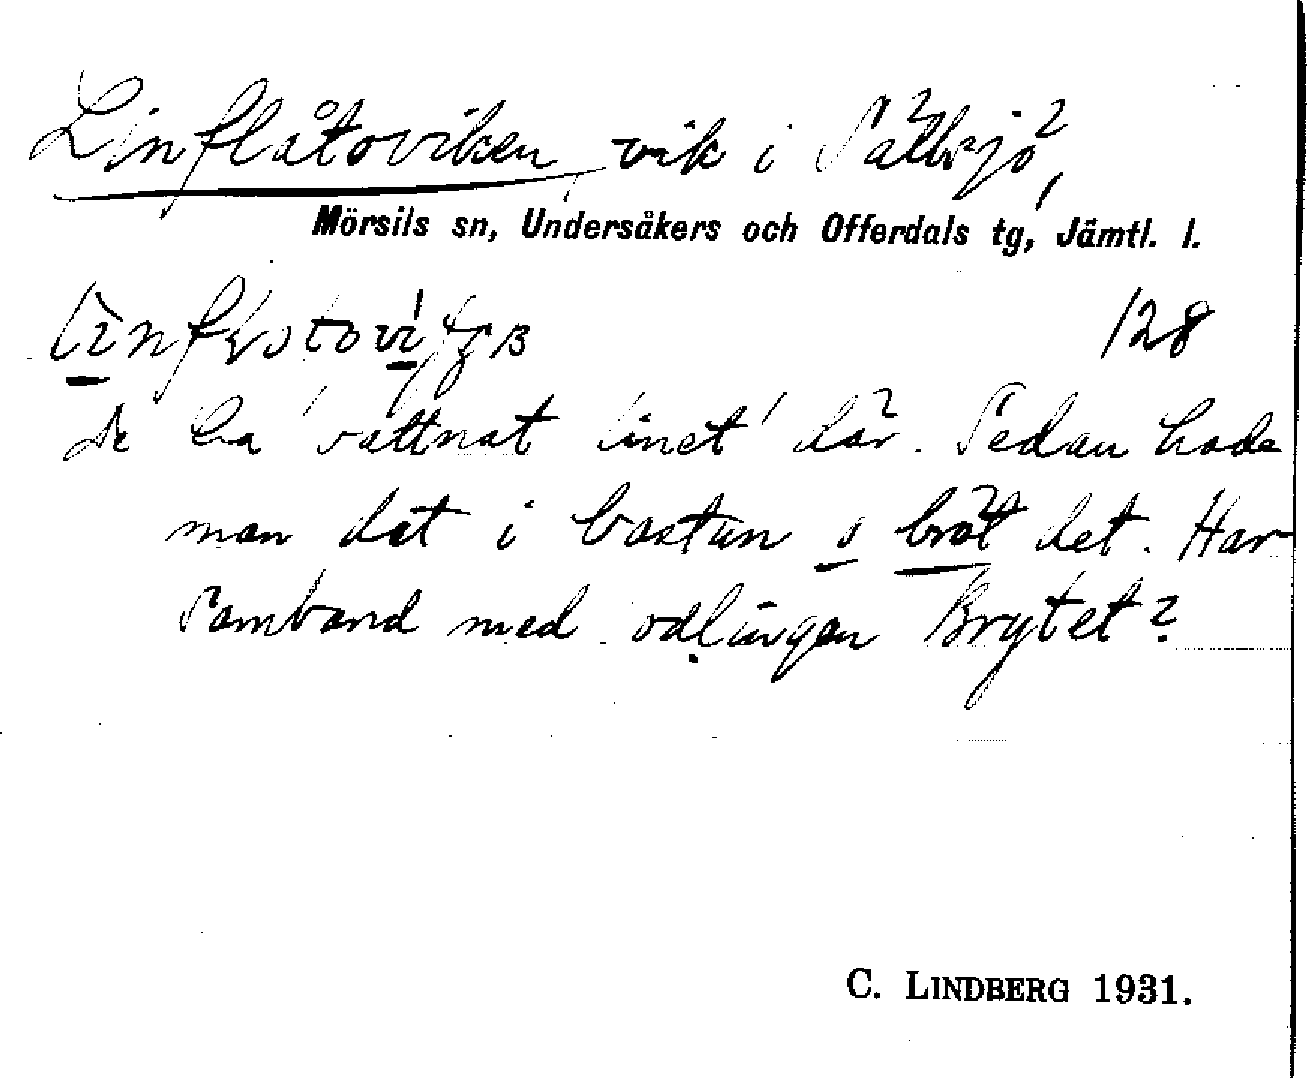 Linflåtoviken, vik i Sällsjö,
Mörsils sn, Undersåkers och Offerdals tg, Jämtl. l.
128
De ha 'vattnat linet' där. Sedan hade
man det i bastun o bröt det. Har
samband med odlingen Brytet?
C. LINDBERG 1931.